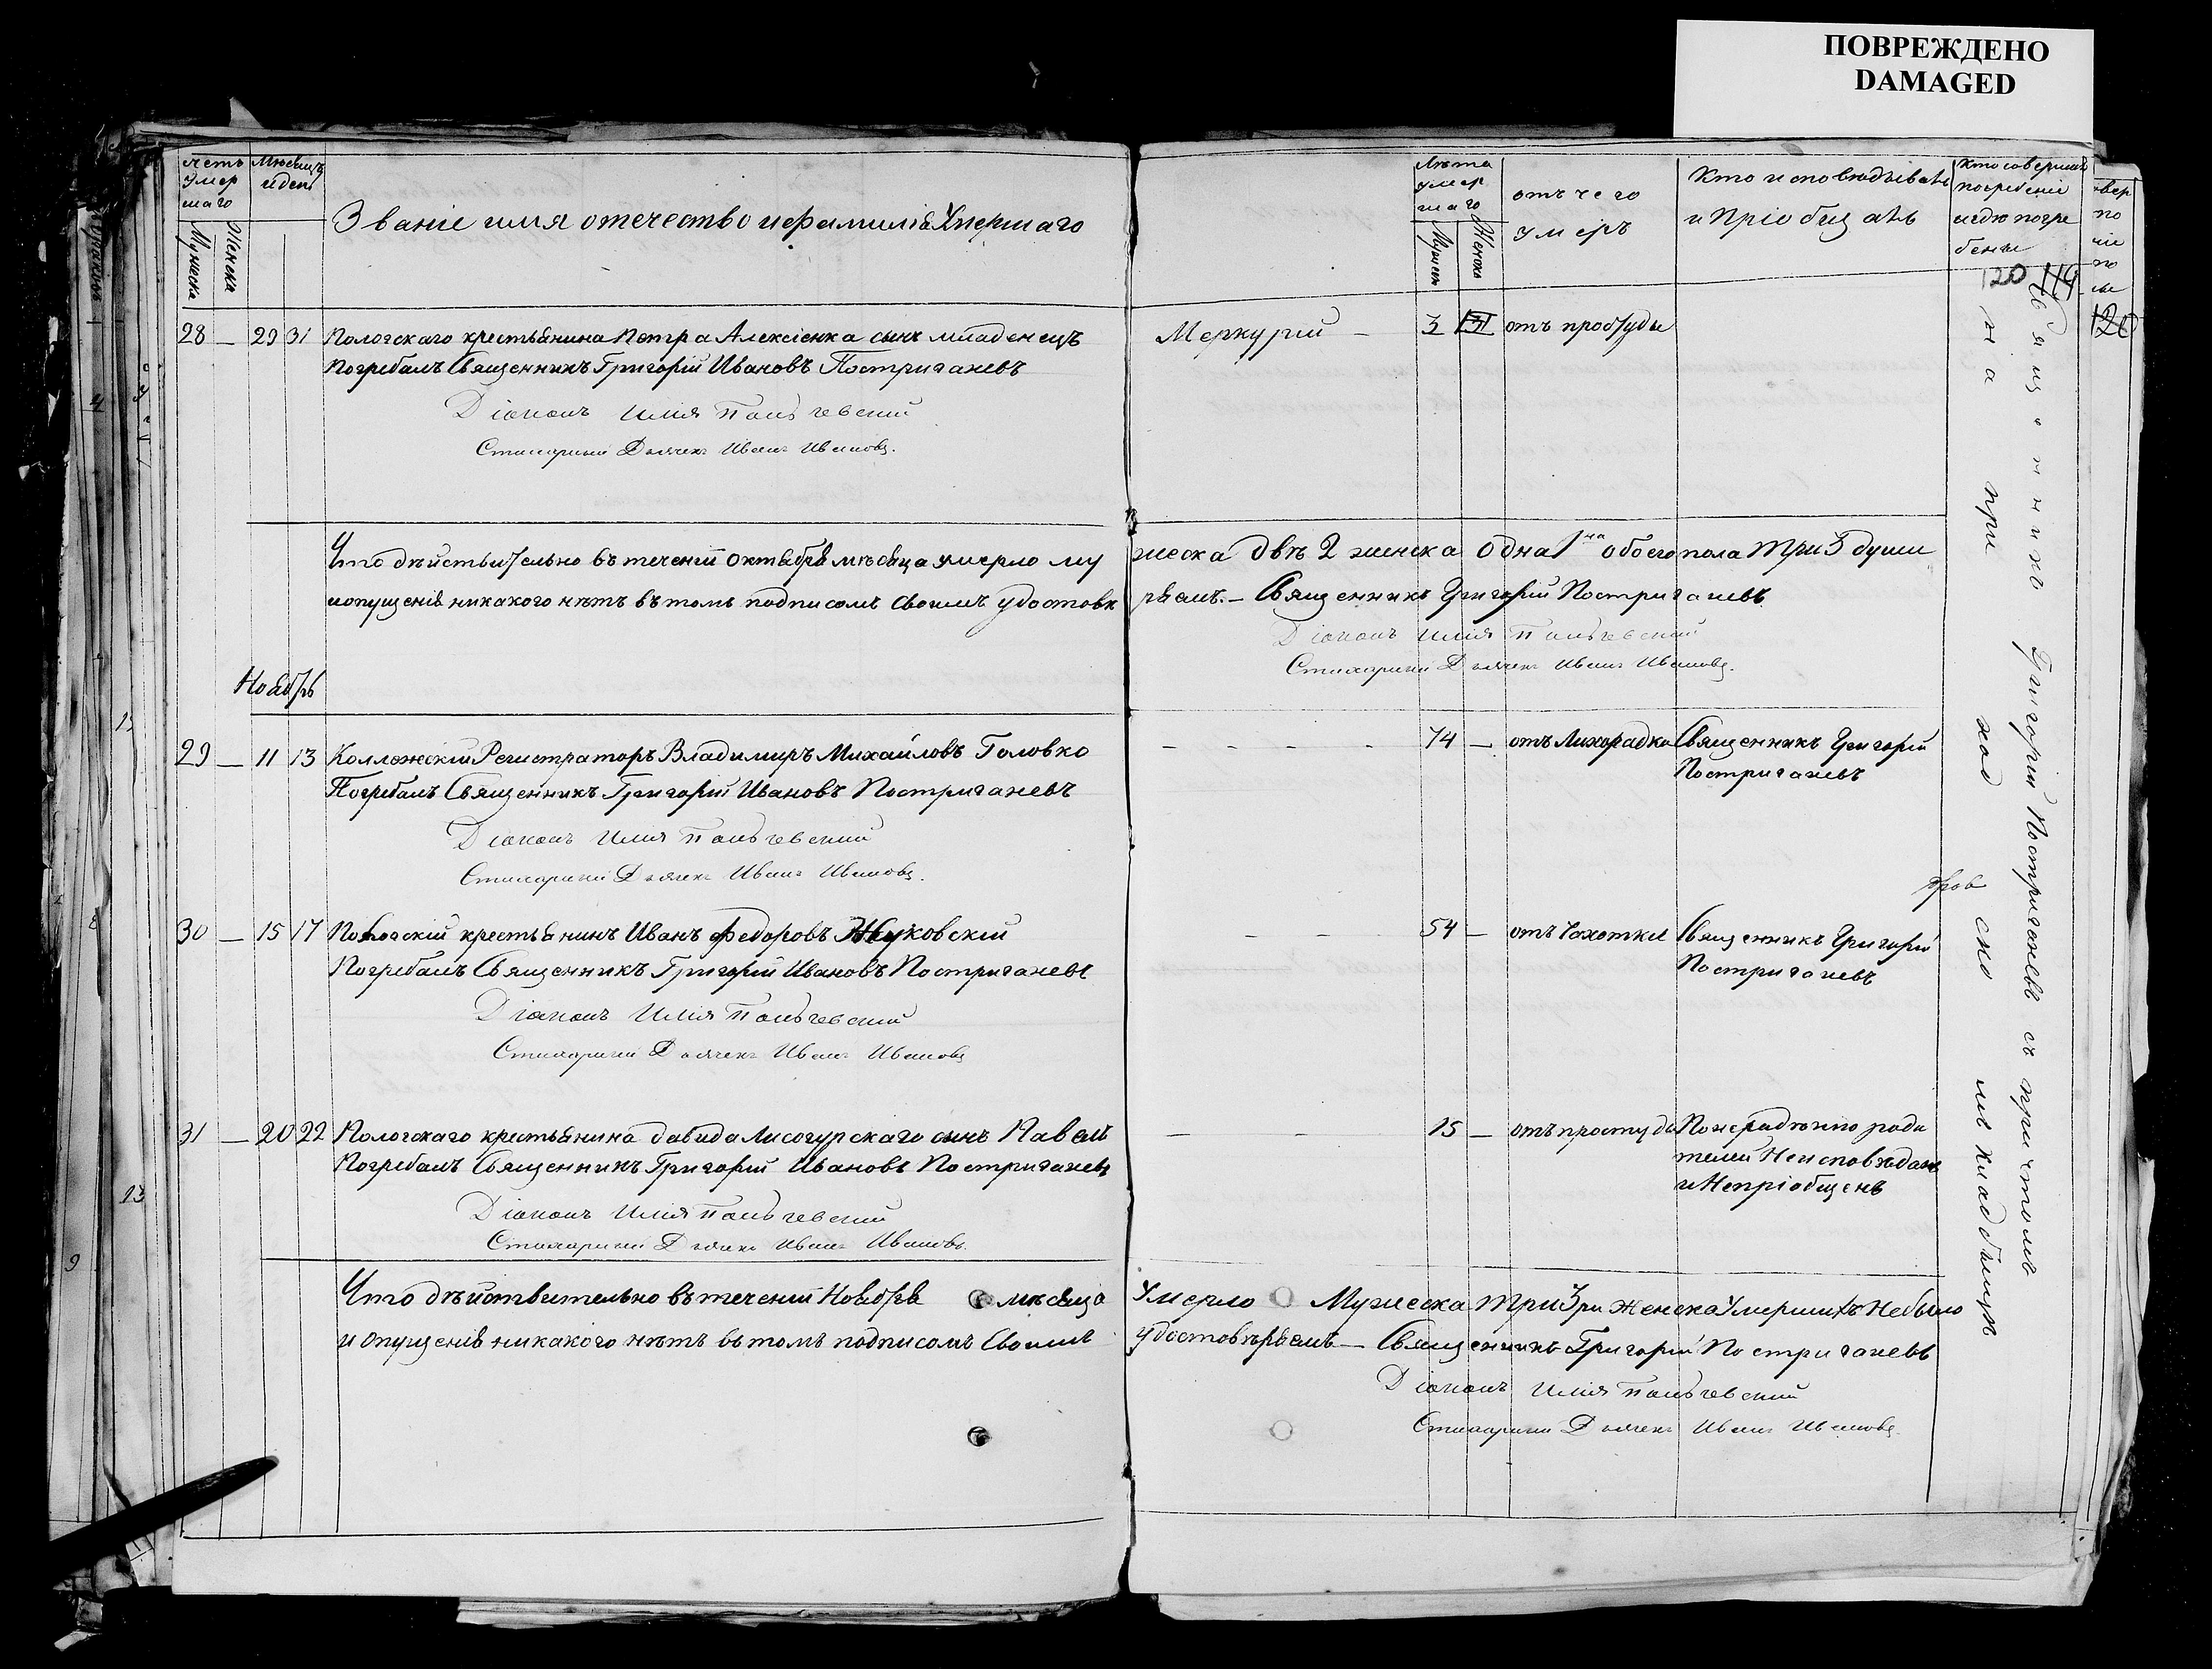 ПОВРЕЖДЕНО
DAMAGED
Счетъ умер шаго
Мужеска
Женска
Мѣсяцъ и день
Званіе имя отечество и фамилія Умершаго
Лѣта умер шаго
Мужеск
Женска
отъ чего умеръ
Кто исповѣдывалъ и Пріобщалъ
Кто совершалъ погребеніе и гдѣ погребены
120 119
120
28 — 29 31 Пологскаго крестьянина Петра Алексіенка сынъ младенецъ Меркурій — 3 отъ простуды
Погребалъ Священникъ Григорій Ивановъ Постригачевъ
Діаконъ Илія
Стихарный Дьячекъ Иванъ Ивановъ.
Что дѣйствительно въ теченіи октября мѣсяца умерло мужеска двѣ 2 женска одна 1на обоего пола три 3 души
и опущенія никакого нѣтъ въ томъ подписомъ своимъ удостовѣряемъ. — Священникъ Григорій Постригачевъ
Діаконъ Илія
Стихарный Дьячекъ Иванъ Ивановъ.
Ноябрь
29 — 11 13 Коллежскій Регистраторъ Владимиръ Михайловъ Головко — — — — — 74 — отъ Лихорадки Священникъ Григорій
Погребалъ Священникъ Григорій Ивановъ Постригачевъ Постригачевъ
Діаконъ Илія
Стихарный Дьячекъ Иванъ Ивановъ.
30 — 15 17 Пологскій крестьянинъ Иванъ Федоровъ Жуковскій — — — 54 — отъ Чахотки Священникъ Григорій
Погребалъ Священникъ Григорій Ивановъ Постригачевъ Постригачевъ
Діаконъ Илія
Стихарный Дьячекъ Иванъ Ивановъ
31 — 20 22 Пологскаго крестьянина Давида Лисогурскаго сынъ Павелъ — — 15 — отъ простуды По нерадѣнію роди
Погребалъ Священникъ Григорій Ивановъ Постригачевъ телей Неисповѣданъ
и Непріобщенъ
Діаконъ Илія
Стихарный Дьячекъ Иванъ Ивановъ.
Что дѣйствительно въ теченіи Ноября мѣсяца Умерло Мужеска три 3ри Женска Умершихъ Небыло
и опущенія никакого нѣтъ въ томъ подписомъ Своимъ удостовѣряемъ — Священникъ Григорій Постригачевъ
Діаконъ Илія
Стихарный Дьячекъ Иванъ Ивановъ.
Священникъ Григорій Постригачевъ съ причтомъ
на приходскомъ кладбищѣ